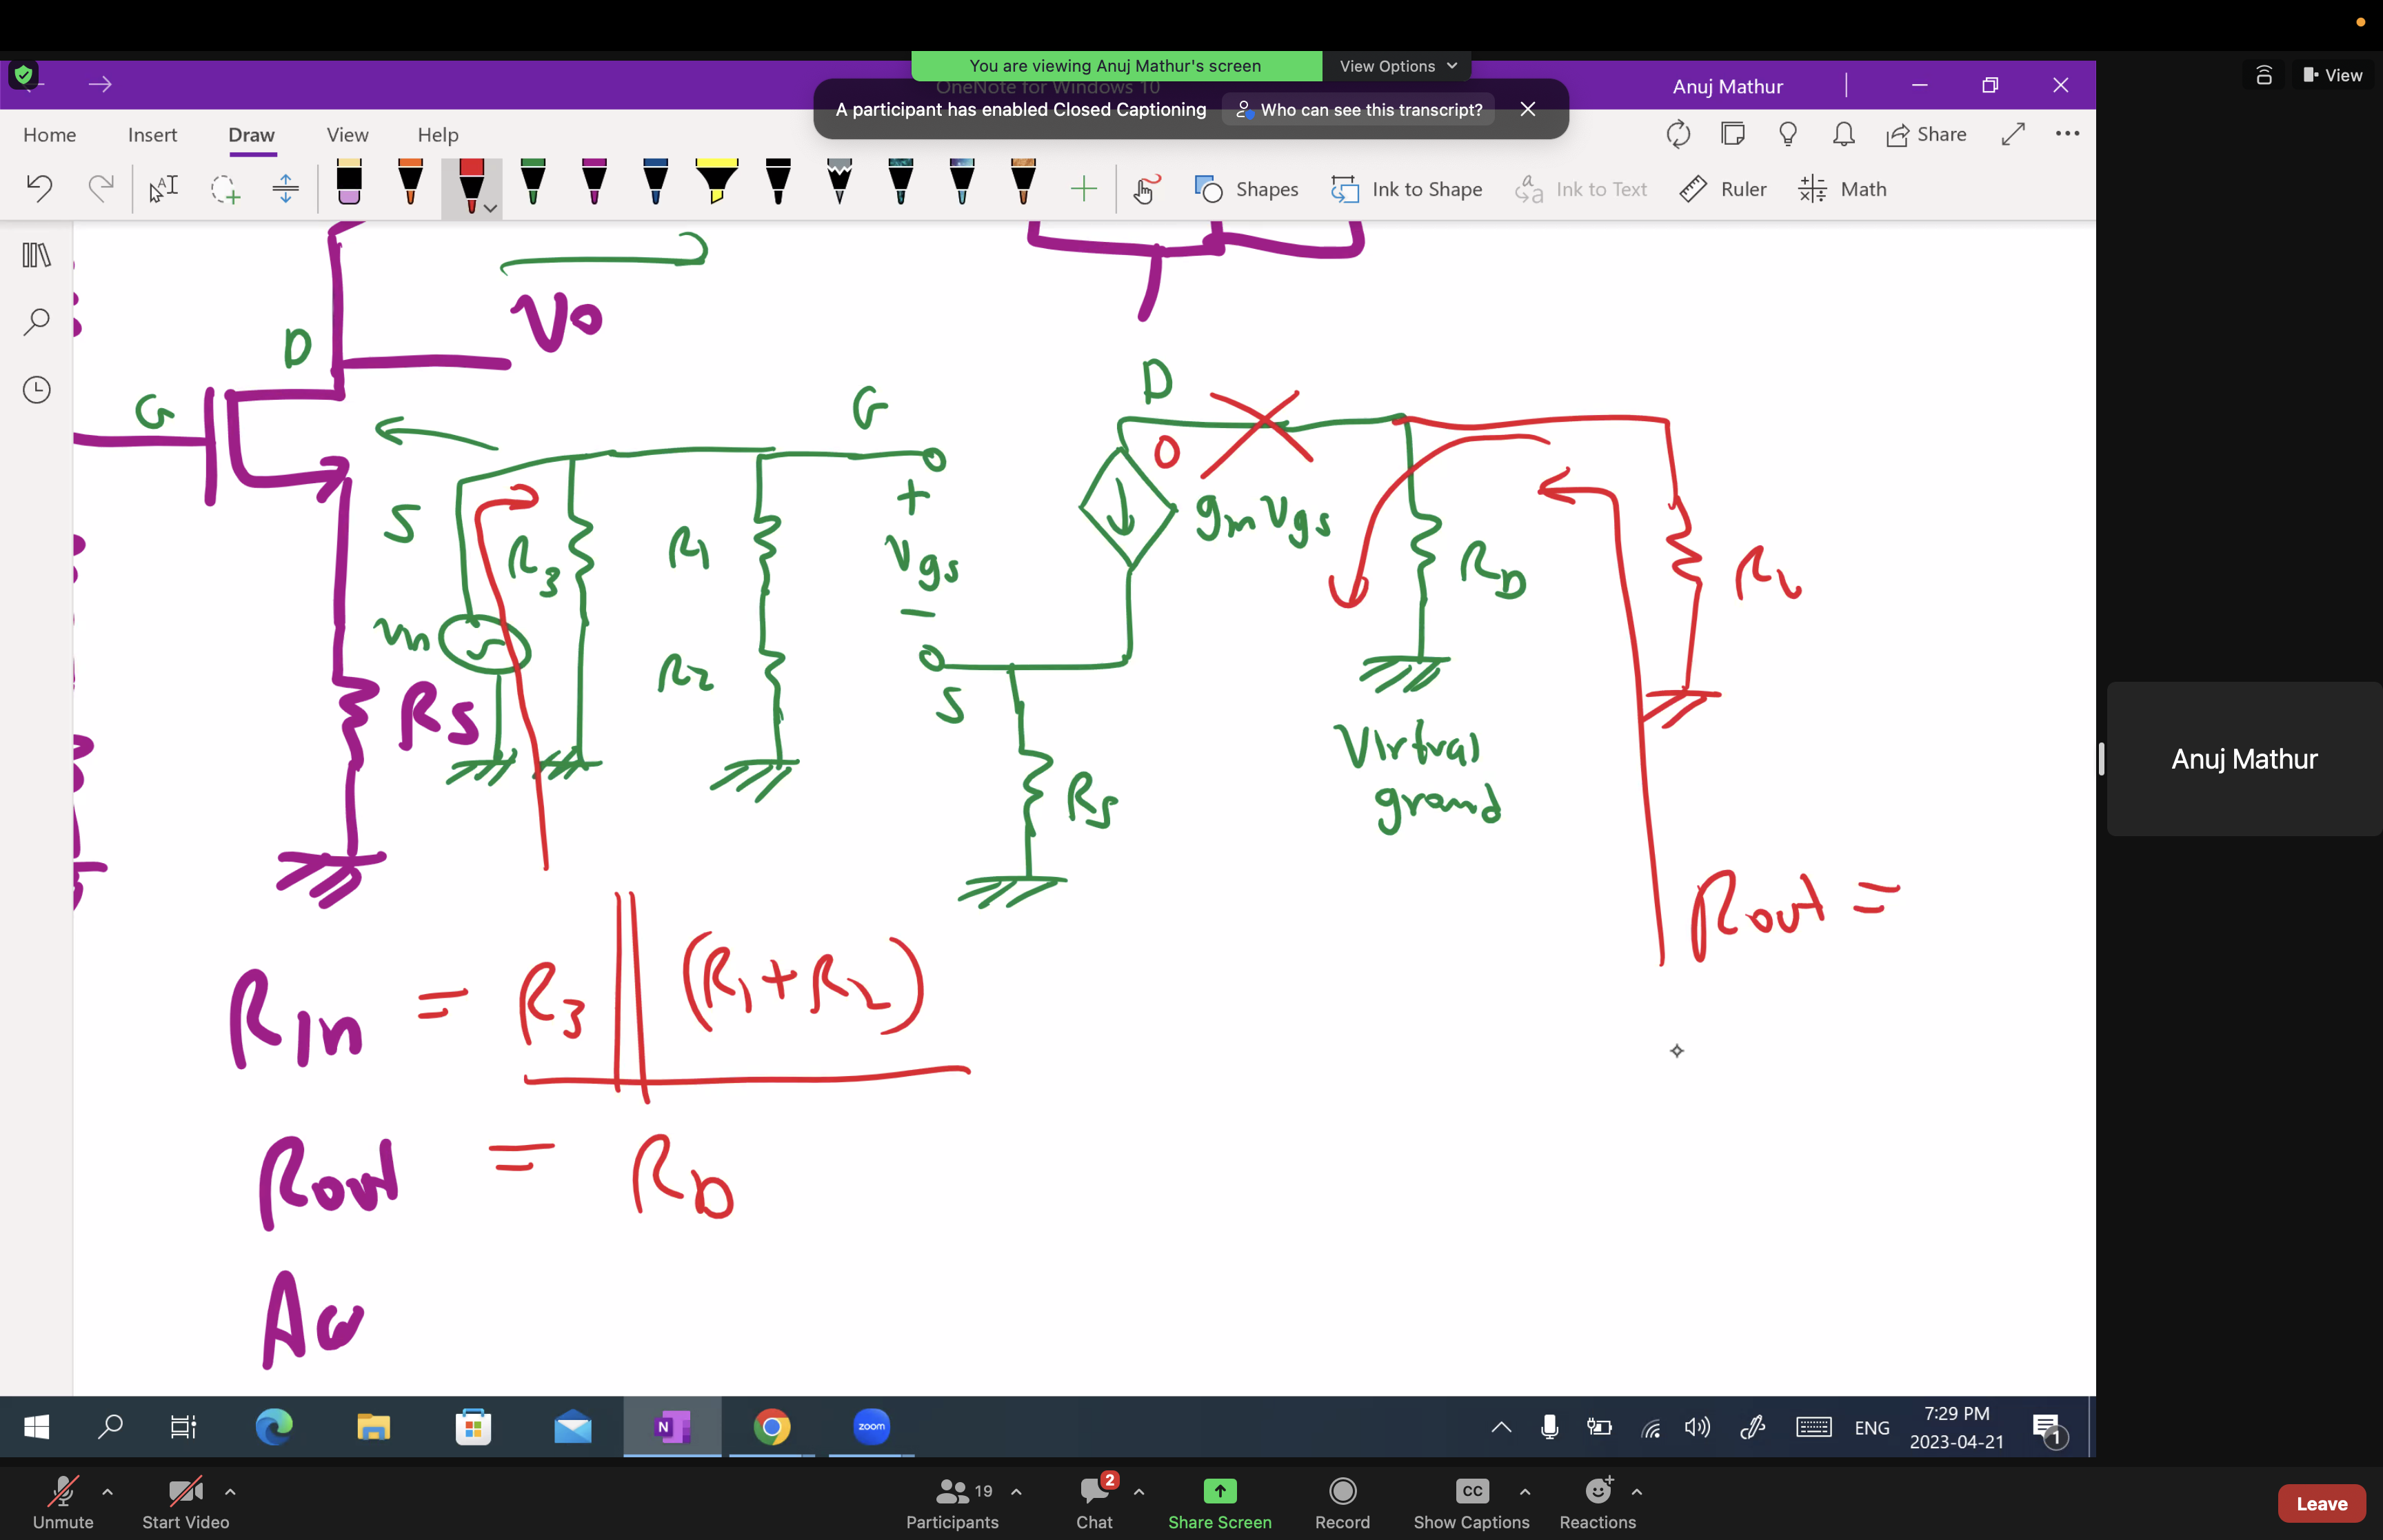 You are viewing Anuj Mathur's screen
View Options
OneNote for Windows 10
Anuj Mathur
View
A participant has enabled Closed Captioning
Who can see this transcript?
Home Insert Draw View Help
Share
Shapes Ink to Shape Ink to Text Ruler Math
Vo
D
D
G
G
S
R3
R1
+
Vgs
−
0
gmVgs
RD
RL
R2
RS
S
RS
Virtual
ground
Rout =
RIn = R3 || (R1 + R2)
Rout = RD
Anuj Mathur
zoom
ENG
7:29 PM
2023-04-21
1
Unmute
Start Video
19
Participants
2
Chat
Share Screen
Record
CC
Show Captions
Reactions
Leave